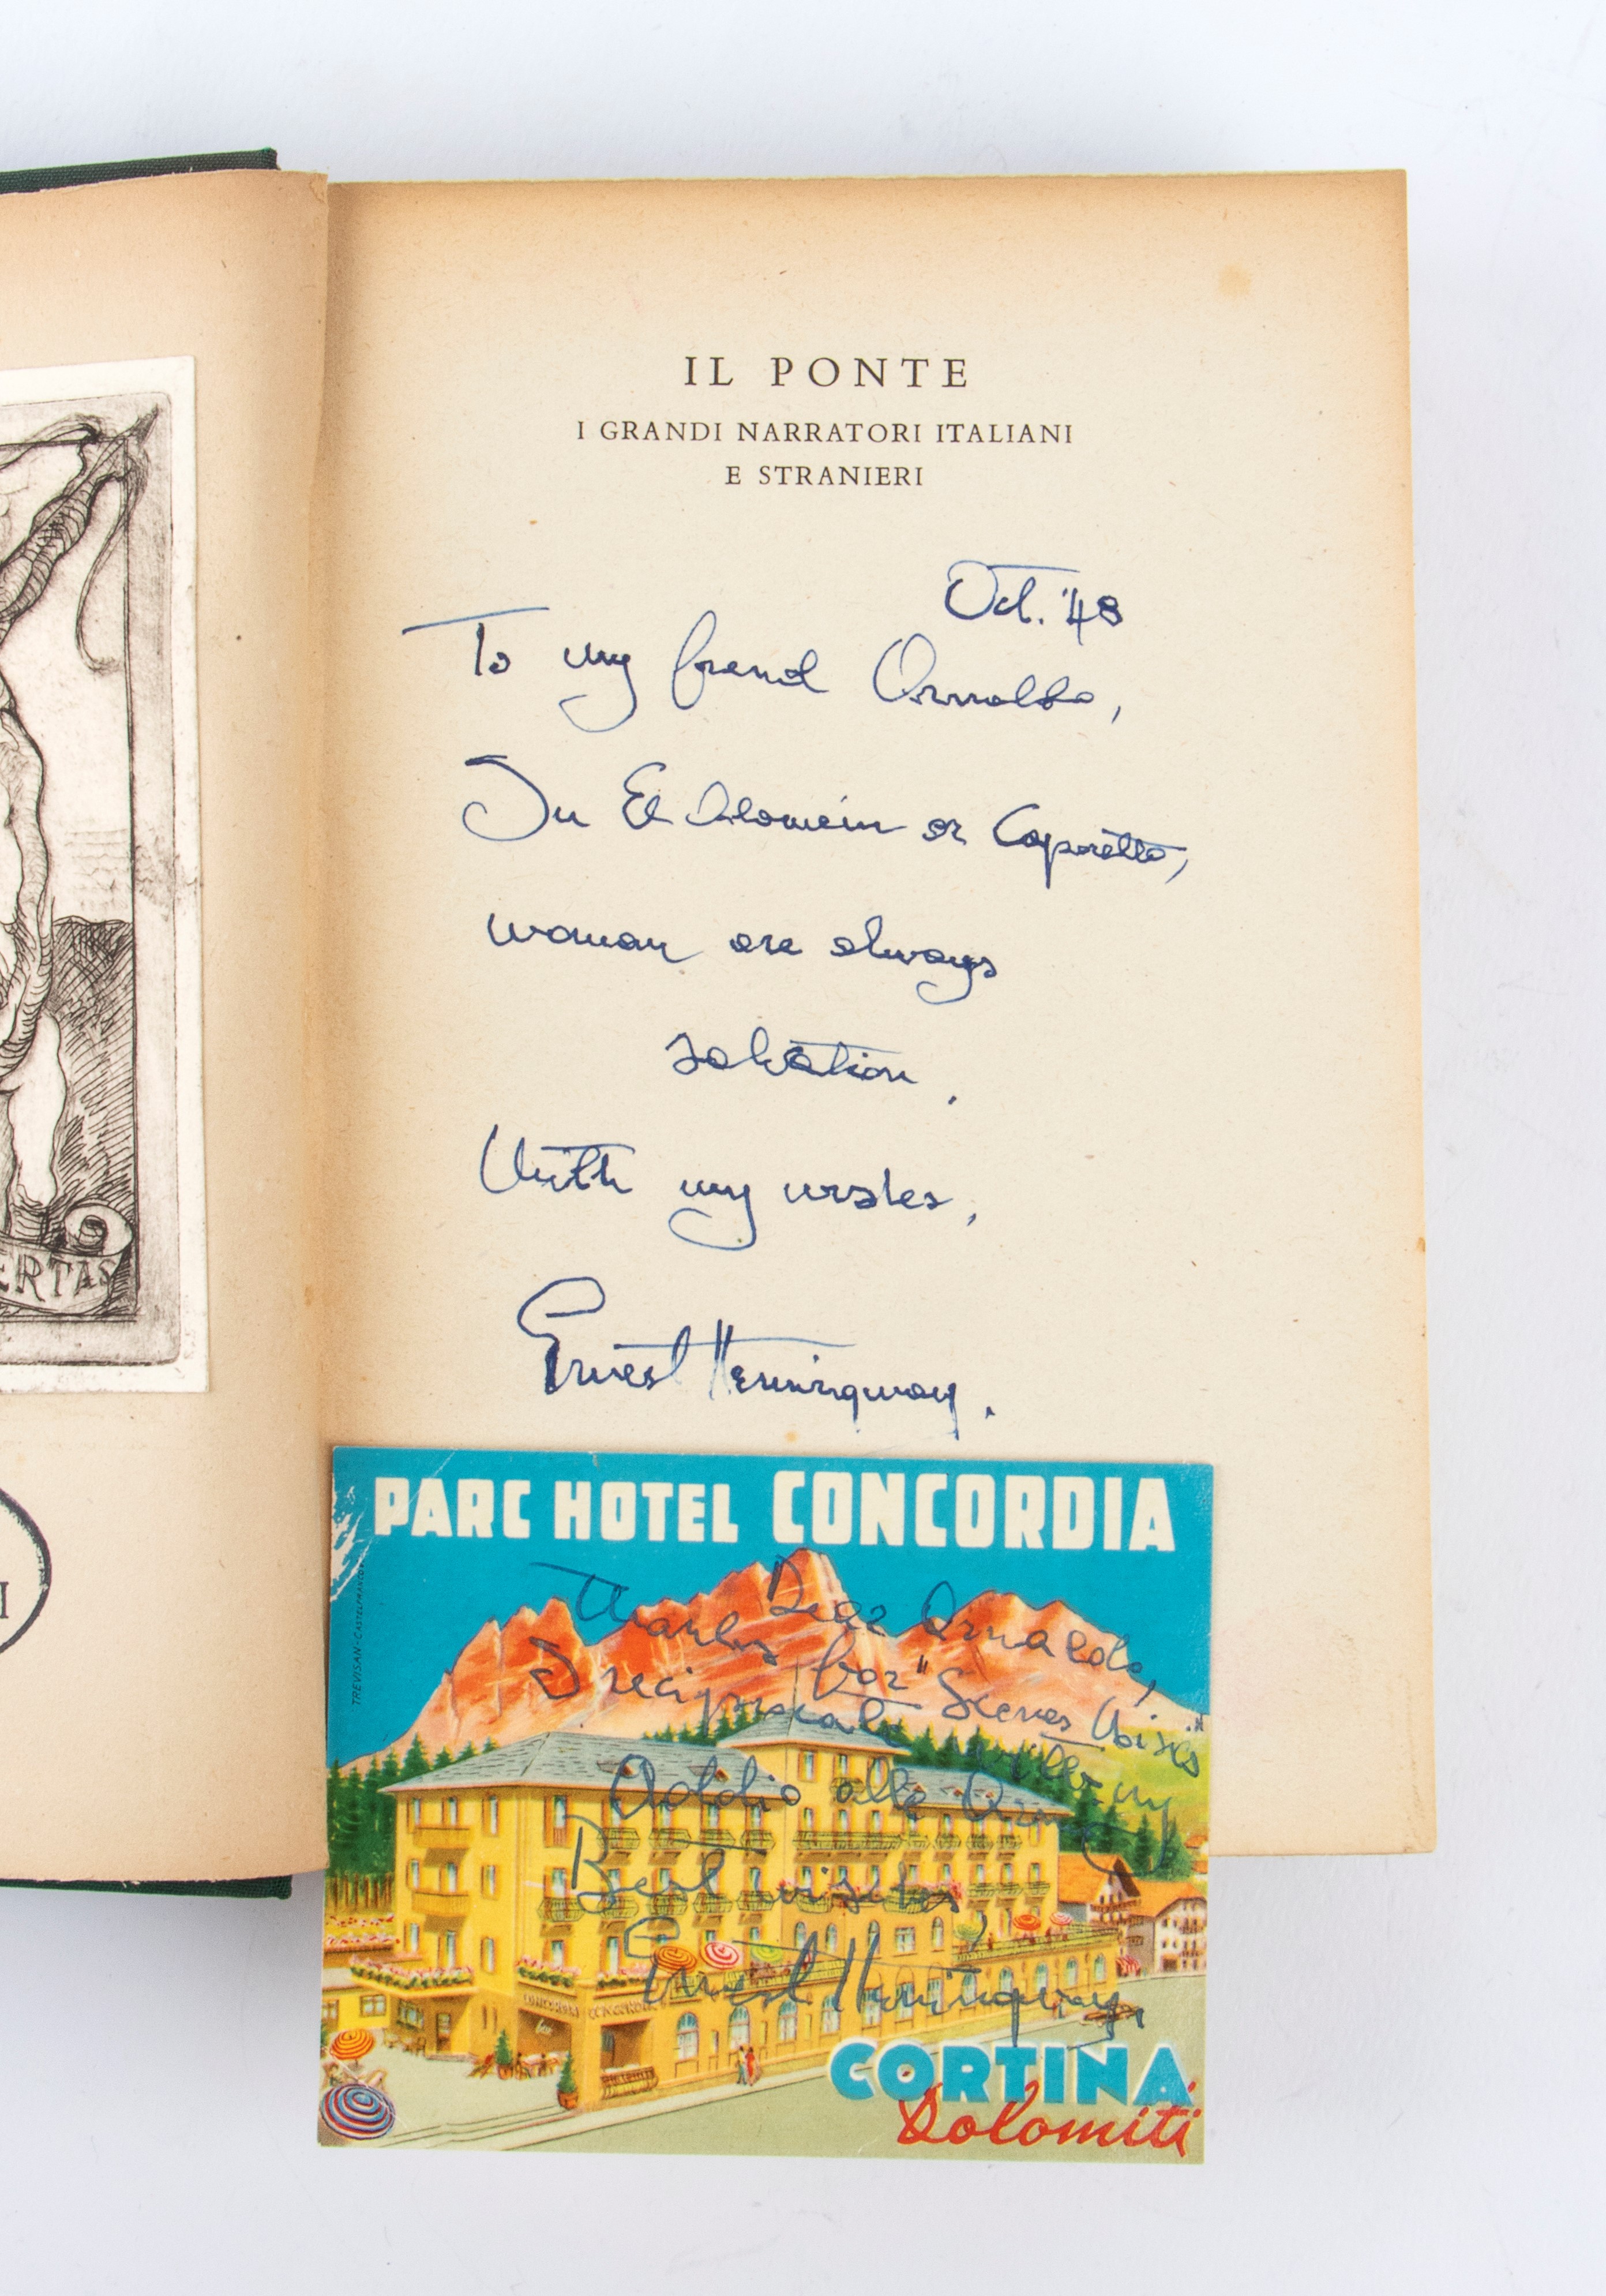 IL PONTE
I GRANDI NARRATORI ITALIANI
E STRANIERI
Oct. '48
To my friend Arnaldo,
In El Alamein or Caporetto,
woman are always
salvation.
With my wishes,
Ernest Hemingway.
ERTAS
I
PARC HOTEL CONCORDIA
TREVISAN - CASTELFRANCO
Dear Arnaldo,
Thanks for "Scenes
I reciprocate with my
Addio alle Armi
Best wishes,
Ernest Hemingway.
CONCORDIA CONCORDIA
CORTINA
Dolomiti